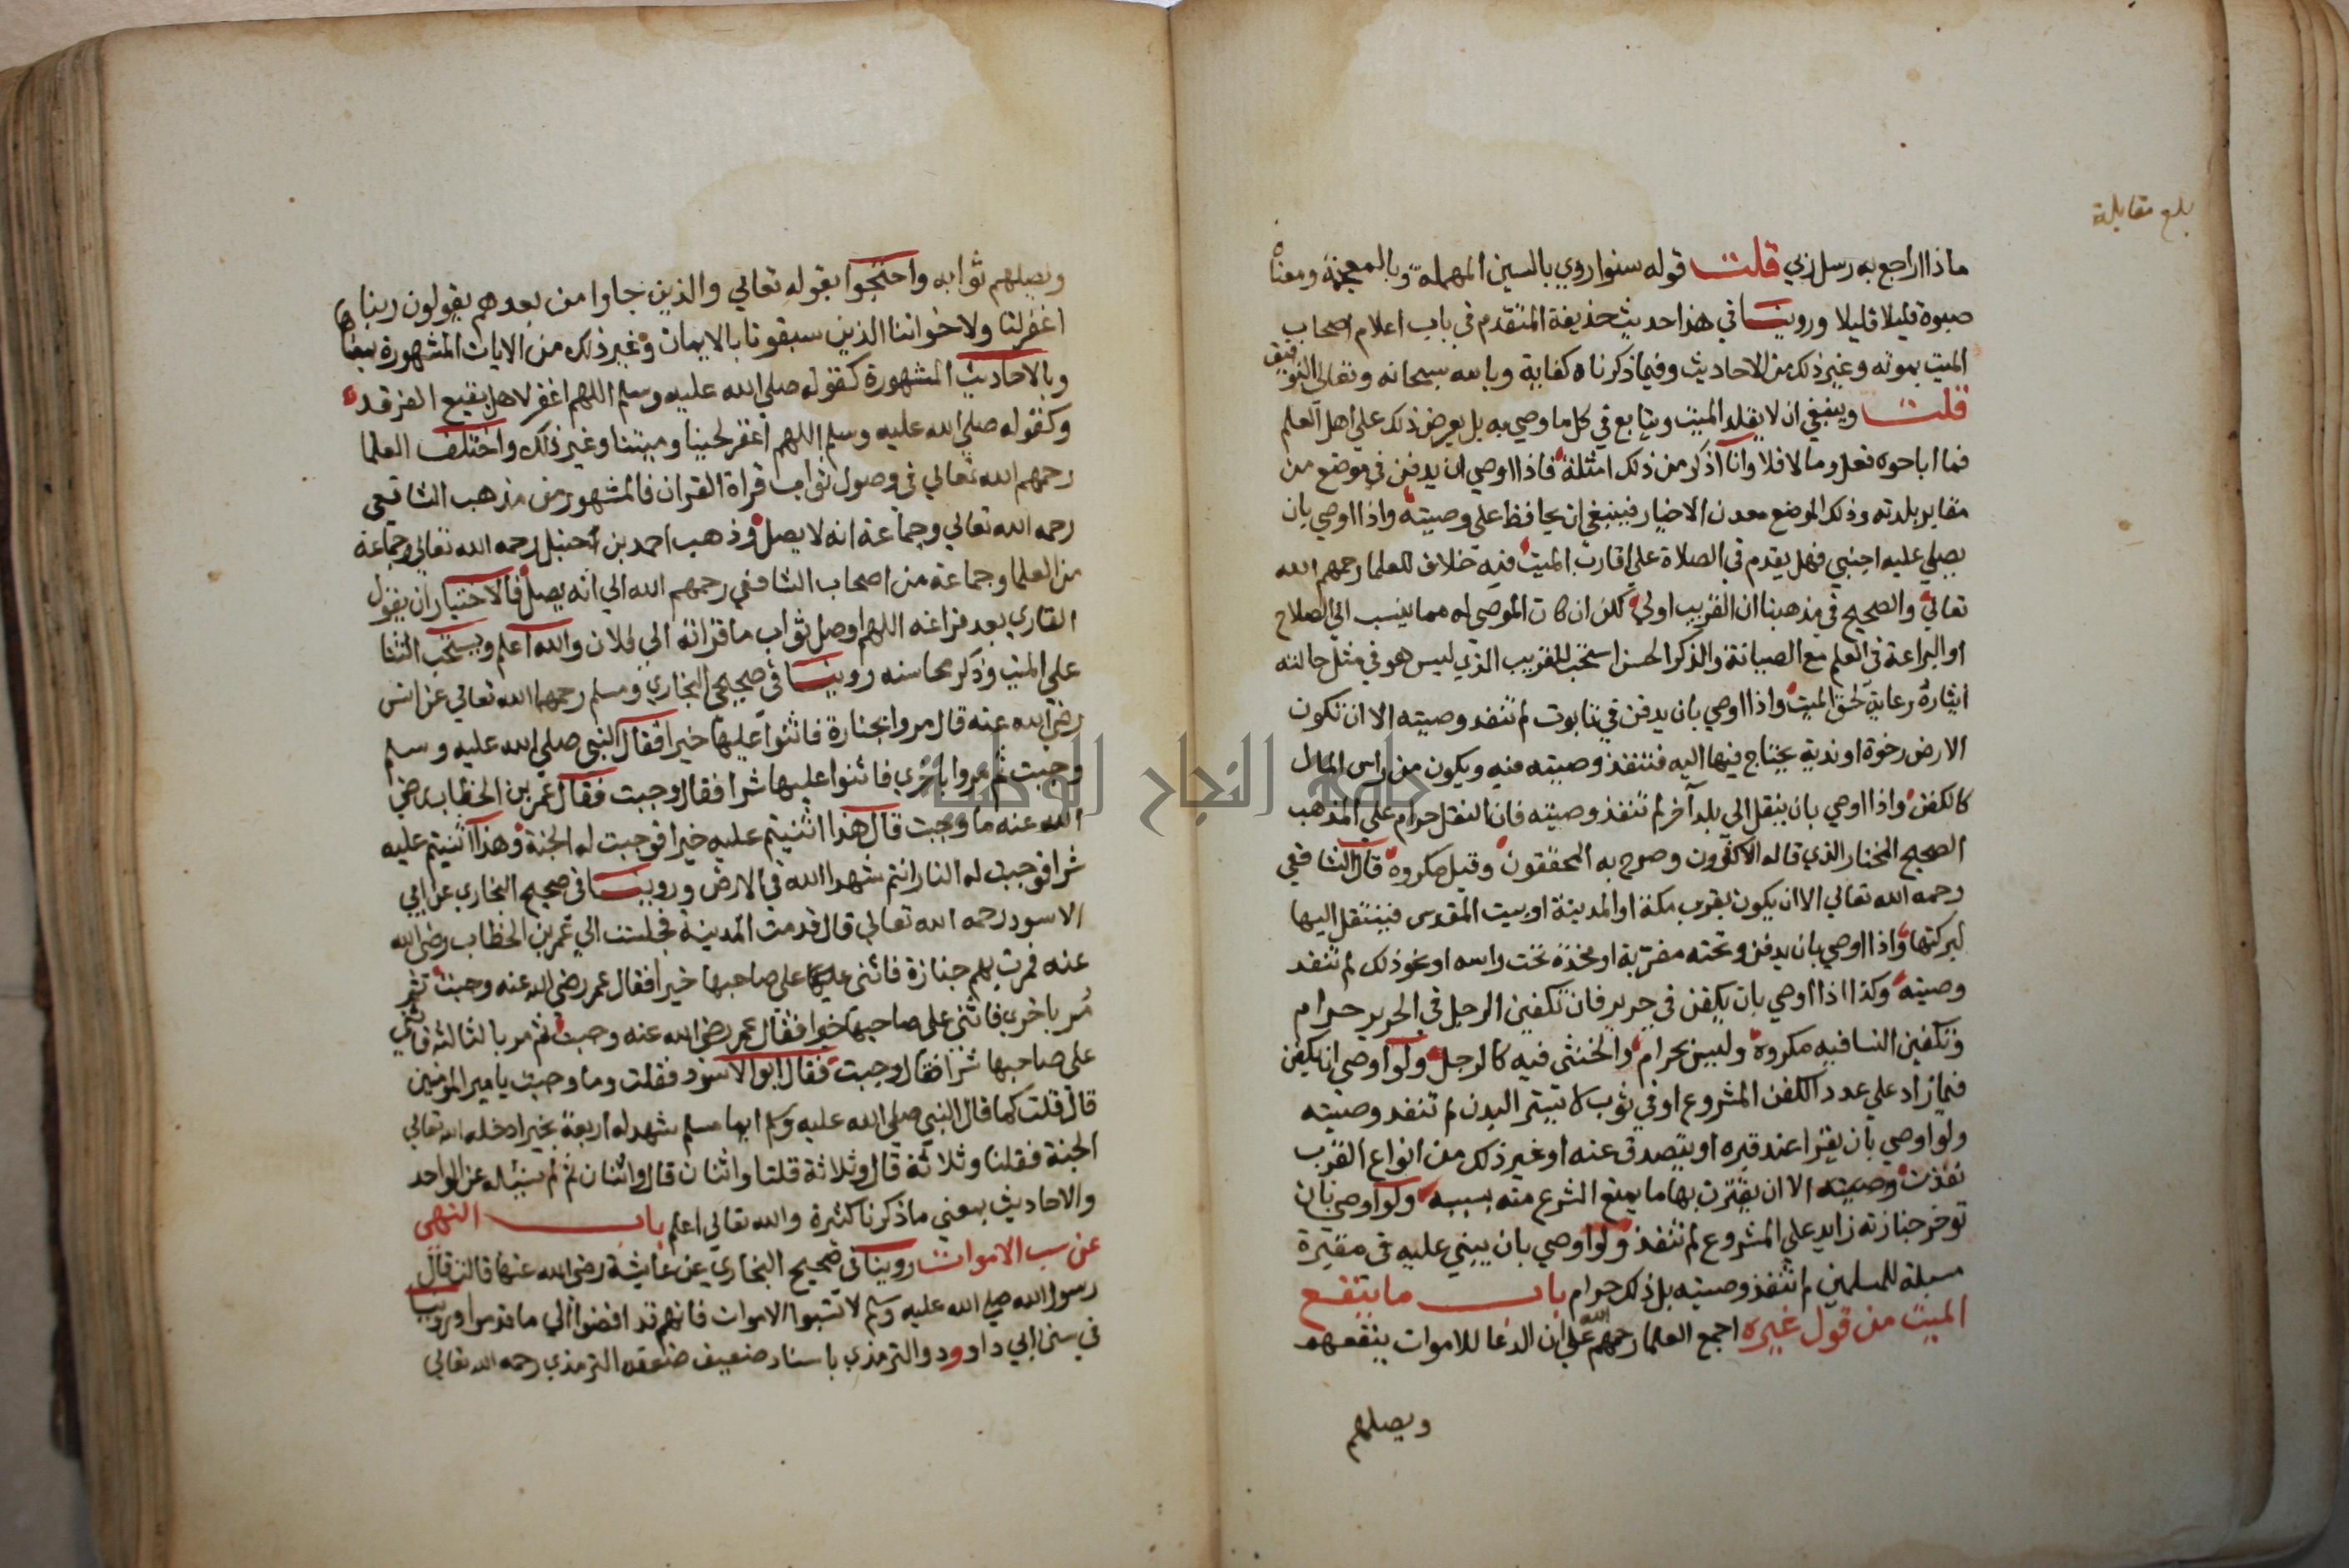 بلغ مقابلة
ماذا اراجع به رسل ربي قلت قوله سنوا روي بالسين المهملة وبالمعجمة ومعناه
صبوه قليلا قليلا وروينا في هذا حديث حذيفة المتقدم في باب اعلام اصحاب
الميت بموته وغير ذلك من الاحاديث وفيما ذكرناه كفاية وبالله سبحانه وتعالى التوفيق
قلت وينبغي ان لا يقلد الميت ويتابع في كل ما وصي به بل يعرض ذلك علي اهل العلم
فما اباحوه فعل وما لا فلا وانا اذكر من ذلك امثلة فاذا اوصي ان يدفن في موضع من
مقابر بلدته وذلك الموضع معدن الاخيار فينبغي ان يحافظ علي وصيته واذا اوصي بان
يصلي عليه اجنبي فهل يقدم في الصلاة علي اقارب الميت فيه خلاف للعلما رحمهم الله
تعالي والصحيح في مذهبنا ان القريب اولي لكن ان كان الموصي له مما ينسب الي الصلاح
او البراعة في العلم مع الصيانة والذكر الحسن استحب للقريب الذي ليس هو في مثل حالته
ايثاره رعاية لحق الميت واذا اوصي بان يدفن في تابوت لم تنفذ وصيته الا ان تكون
الارض رخوة او ندية يحتاج فيها اليه فتنفذ وصيته فيه ويكون من راس المال
كالكفن واذا اوصي بان ينقل الي بلد آخر لم تنفذ وصيته فان النقل حرام علي المذهب
الصحيح المختار الذي قاله الاكثرون وصرح به المحققون وقيل مكروه قال الشافعي
رحمه الله تعالي الا ان يكون بقرب مكة او المدينة او بيت المقدس فينتقل اليها
لبركتها واذا اوصي بان يدفن وتحته مضربة او مخدة تحت راسه او نحو ذلك لم تنفذ
وصيته وكذا اذا اوصي بان يكفن في حرير فان تكفين الرجل في الحرير حرام
وتكفين النسا فيه مكروه وليس بحرام والخنثى فيه كالرجل ولو اوصي ان يكفن
فيما زاد علي عدد الكفن المشروع او في ثوب لا يستر البدن لم تنفذ وصيته
ولو اوصي بان يقرا عند قبره او يتصدق عنه او غير ذلك من انواع القرب
نفذت وصيته الا ان يقترن بها ما يمنع الشرع منه بسببه ولو اوصي بان
توخر جنازته زايد علي المشروع لم تنفذ ولو اوصي بان يبني عليه في مقبرة
مسبلة للمسلمين لم تنفذ وصيته بل ذلك حرام باب ما ينتفع
الميت من قول غيره اجمع العلما رحمهم الله علي ان الدعا للاموات ينفعهم
ويصلهم
ويصلهم ثوابه واحتجوا بقوله تعالي والذين جاوا من بعدهم يقولون ربنا
اغفر لنا ولاخواننا الذين سبقونا بالايمان وغير ذلك من الايات المشهورة بمعناها
وبالاحاديث المشهورة كقوله صلى الله عليه وسلم اللهم اغفر لاهل بقيع الغرقد
وكقوله صلي الله عليه وسلم اللهم اغفر لحينا وميتنا وغير ذلك واختلف العلما
رحمهم الله تعالي في وصول ثواب قراة القران فالمشهور من مذهب الشافعي
رحمه الله تعالي وجماعة انه لا يصل وذهب احمد بن حنبل رحمه الله تعالي وجماعة
من العلما وجماعة من اصحاب الشافعي رحمهم الله الي انه يصل فالاختيار ان يقول
القاري بعد فراغه اللهم اوصل ثواب ما قراته الي فلان والله اعلم ويستحب الثنا
علي الميت وذكر محاسنه روينا في صحيحي البخاري ومسلم رحمهما الله تعالي عن انس
رضي الله عنه قال مروا بجنازة فاثنوا عليها خيرا فقال النبي صلي الله عليه وسلم
وجبت ثم مروا باخري فاثنوا عليها شرا فقال وجبت فقال عمر بن الخطاب رضي
الله عنه ما وجبت قال هذا اثنيتم عليه خيرا فوجبت له الجنة وهذا اثنيتم عليه
شرا فوجبت له النار انتم شهدا الله في الارض وروينا في صحيح البخاري عن ابي
الاسود رحمه الله تعالي قال قدمت المدينة فجلست الي عمر بن الخطاب رضي الله
عنه فمرت بهم جنازة فاثنى علي صاحبها خيرا فقال عمر رضي الله عنه وجبت ثم
مر باخري فاثني علي صاحبها خيرا فقال عمر رضي الله عنه وجبت ثم مر بالثالثة فاثني
على صاحبها شرا فقال وجبت فقال ابو الاسود فقلت وما وجبت يا امير المومنين
قال قلت كما قال النبي صلى الله عليه وسلم ايما مسلم شهد له اربعة بخير ادخله الله تعالي
الجنة فقلنا وثلاثة قال وثلاثة قلنا واثنان قال واثنان ثم لم نسئله عن الواحد
والاحاديث بمعني ما ذكرنا كثيرة والله تعالي اعلم باب النهي
عن سب الاموات روينا في صحيح البخاري عن عايشة رضي الله عنها قالت قال
رسول الله صلي الله عليه وسلم لا تسبوا الاموات فانهم قد افضوا الي ما قدموا وروينا
في سنن ابي داوود والترمذي باسناد ضعيف ضعفه الترمذي رحمه الله تعالي
جامعة النجاح الوطنية